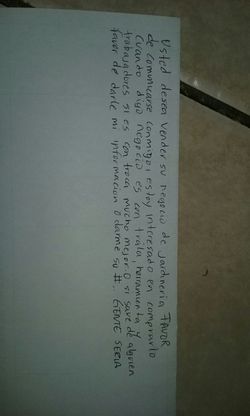 Usted desea vender su negocio de jardineria FAVOR
de comunicarse conmigo, estoy interesado en comprarlo
Cuando digo negocio es con traila, herramienta y
trabajadores si es con troca mucho mejor O si save de alguien
favor de darle mi informacion O darme su #... GENTE SERIA